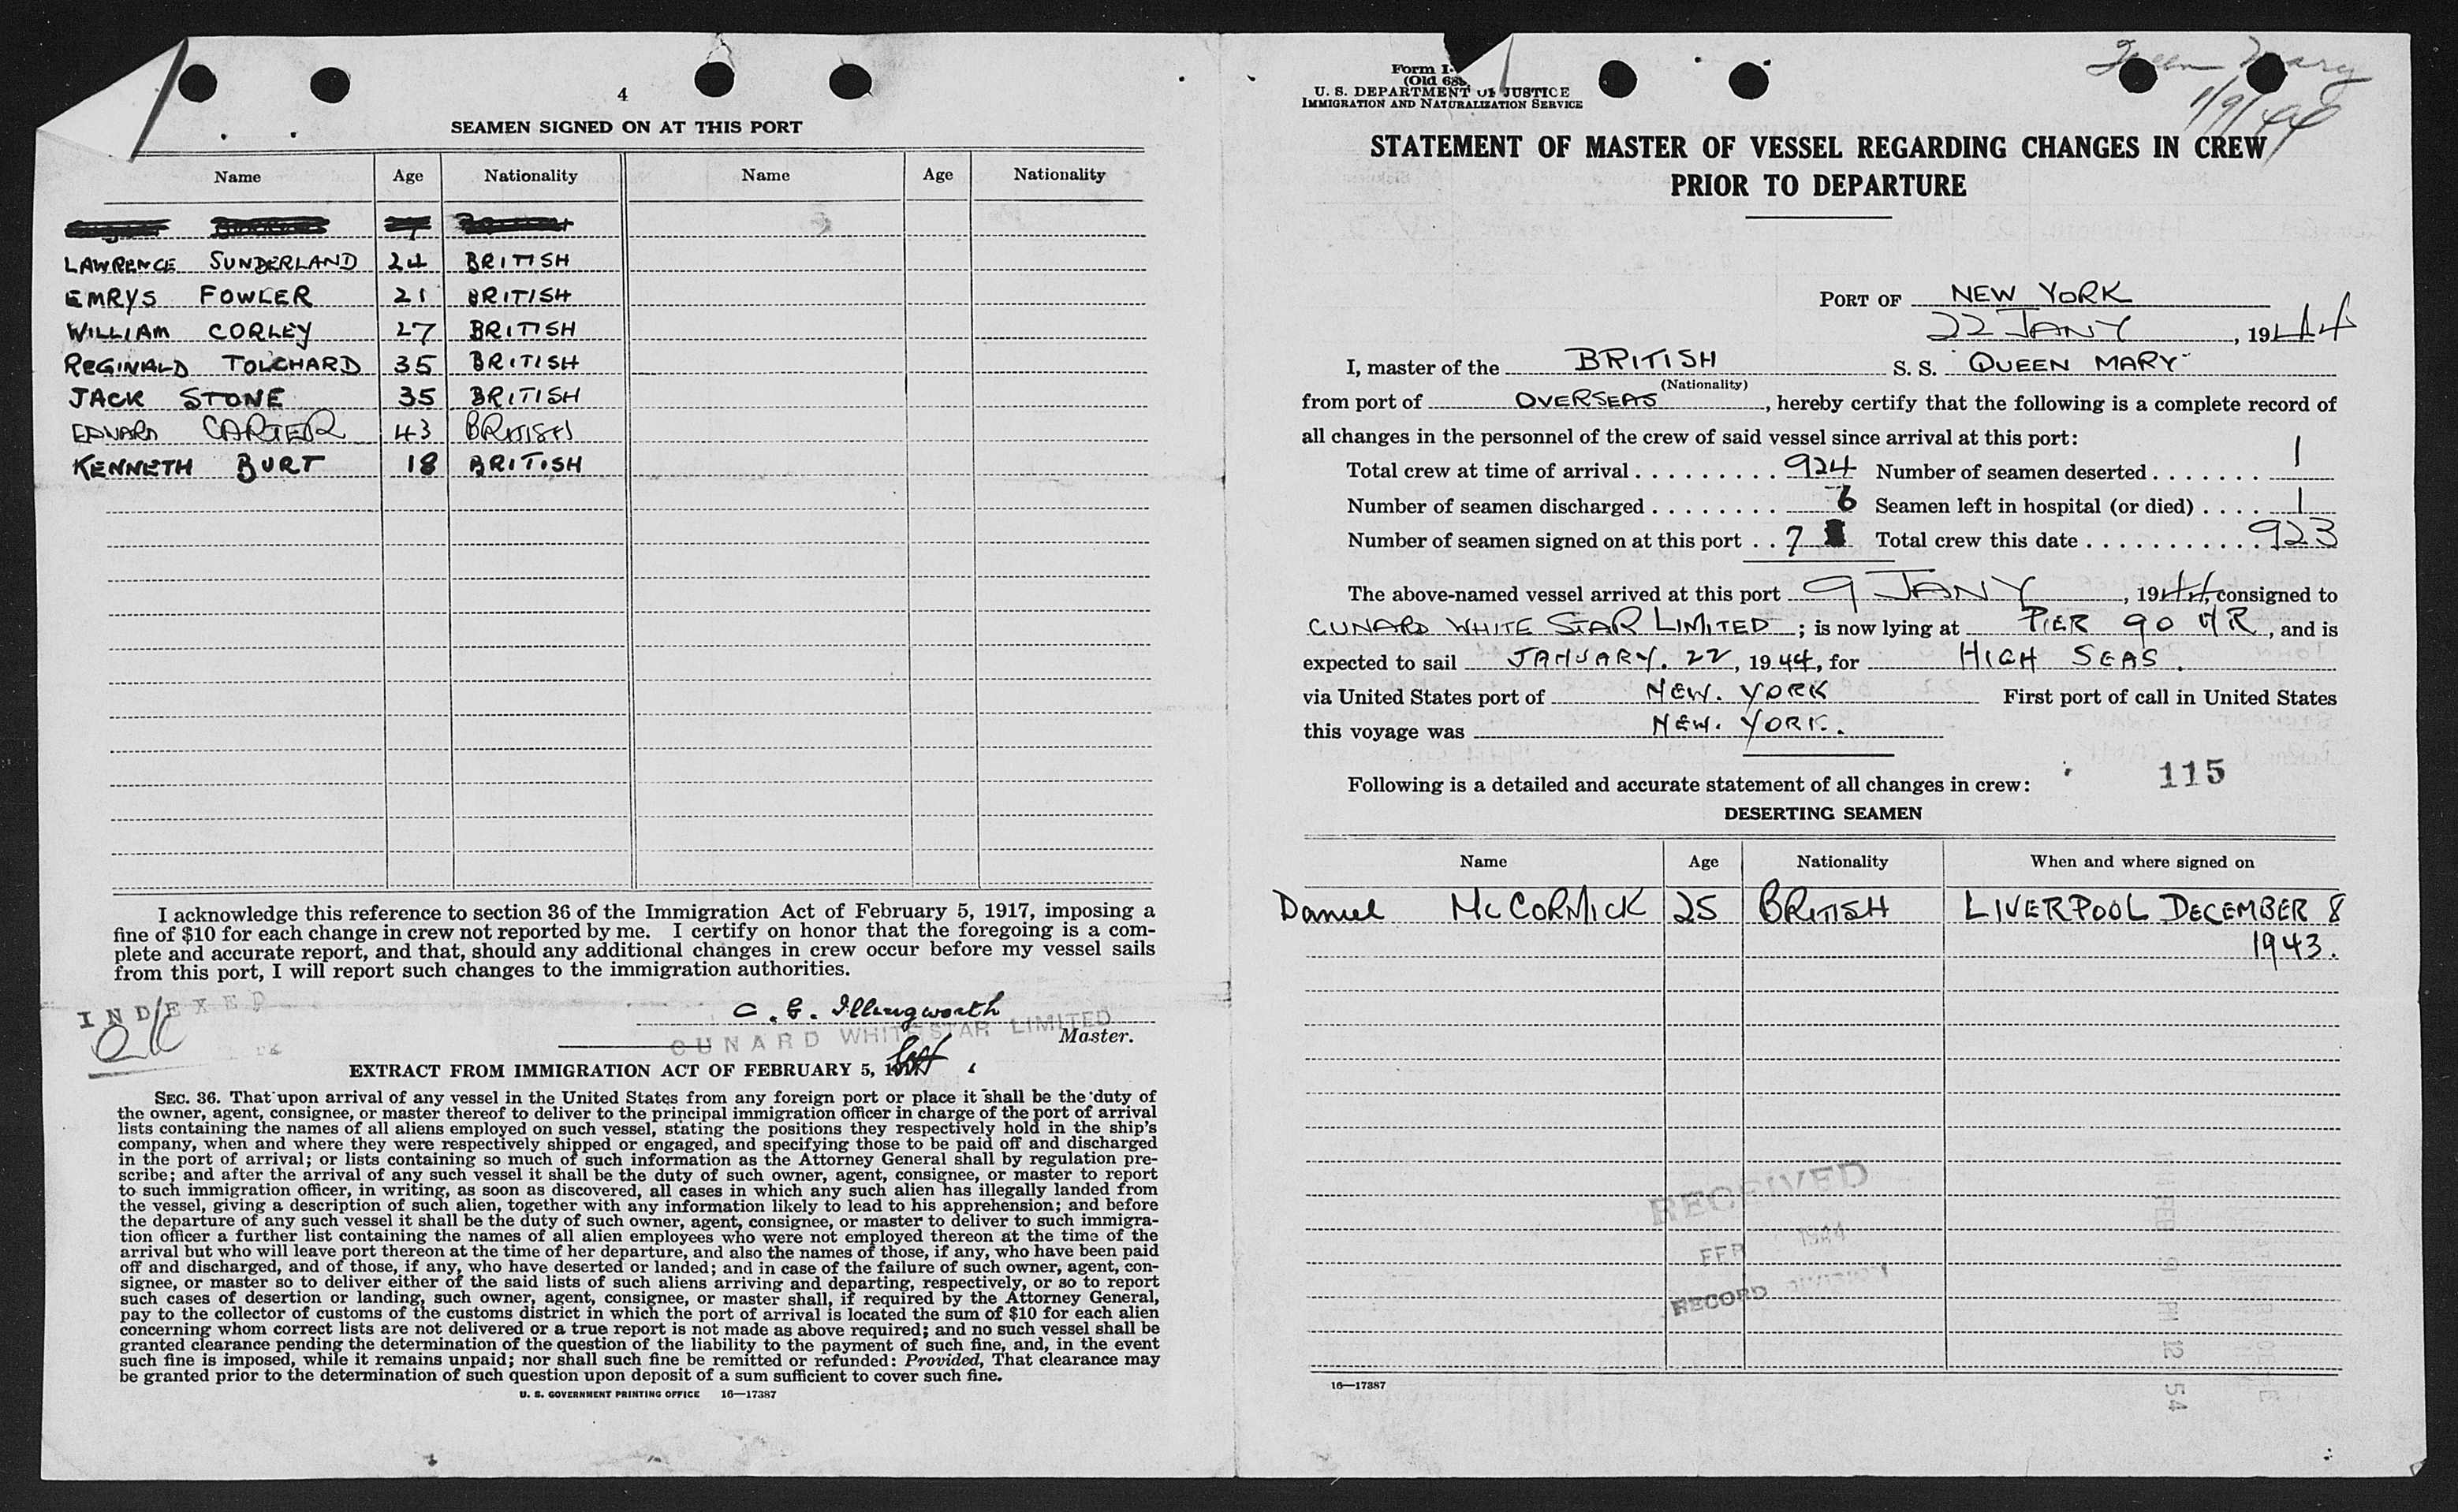 4
SEAMEN SIGNED ON AT THIS PORT
Name Age Nationality Name Age Nationality
LAWRENCE SUNDERLAND 24 BRITISH
EMRYS FOWLER 21 BRITISH
WILLIAM CORLEY 27 BRITISH
REGINALD TOLCHARD 35 BRITISH
JACK STONE 35 BRITISH
EDWARD CARTER 43 BRITISH
KENNETH BURT 18 BRITISH
I acknowledge this reference to section 36 of the Immigration Act of February 5, 1917, imposing a
fine of $10 for each change in crew not reported by me. I certify on honor that the foregoing is a com-
plete and accurate report, and that, should any additional changes in crew occur before my vessel sails
from this port, I will report such changes to the immigration authorities.
INDEXED
OK
C. G. Illingworth
CUNARD WHITE STAR LIMITED
Master.
EXTRACT FROM IMMIGRATION ACT OF FEBRUARY 5,
SEC. 36. That upon arrival of any vessel in the United States from any foreign port or place it shall be the duty of
the owner, agent, consignee, or master thereof to deliver to the principal immigration officer in charge of the port of arrival
lists containing the names of all aliens employed on such vessel, stating the positions they respectively hold in the ship's
company, when and where they were respectively shipped or engaged, and specifying those to be paid off and discharged
in the port of arrival; or lists containing so much of such information as the Attorney General shall by regulation pre-
scribe; and after the arrival of any such vessel it shall be the duty of such owner, agent, consignee, or master to report
to such immigration officer, in writing, as soon as discovered, all cases in which any such alien has illegally landed from
the vessel, giving a description of such alien, together with any information likely to lead to his apprehension; and before
the departure of any such vessel it shall be the duty of such owner, agent, consignee, or master to deliver to such immigra-
tion officer a further list containing the names of all alien employees who were not employed thereon at the time of the
arrival but who will leave port thereon at the time of her departure, and also the names of those, if any, who have been paid
off and discharged, and of those, if any, who have deserted or landed; and in case of the failure of such owner, agent, con-
signee, or master so to deliver either of the said lists of such aliens arriving and departing, respectively, or so to report
such cases of desertion or landing, such owner, agent, consignee, or master shall, if required by the Attorney General,
pay to the collector of customs of the customs district in which the port of arrival is located the sum of $10 for each alien
concerning whom correct lists are not delivered or a true report is not made as above required; and no such vessel shall be
granted clearance pending the determination of the question of the liability to the payment of such fine, and, in the event
such fine is imposed, while it remains unpaid; nor shall such fine be remitted or refunded: Provided, That clearance may
be granted prior to the determination of such question upon deposit of a sum sufficient to cover such fine.
U. S. GOVERNMENT PRINTING OFFICE 16—17387
Queen Mary
1/9/44
Form I-
(Old 68
U. S. DEPARTMENT OF JUSTICE
IMMIGRATION AND NATURALIZATION SERVICE
STATEMENT OF MASTER OF VESSEL REGARDING CHANGES IN CREW
PRIOR TO DEPARTURE
PORT OF NEW YORK
22 JANY, 1944
I, master of the BRITISH S. S. "QUEEN MARY"
(Nationality)
from port of OVERSEAS, hereby certify that the following is a complete record of
all changes in the personnel of the crew of said vessel since arrival at this port:
Total crew at time of arrival 924 Number of seamen deserted 1
Number of seamen discharged 6 Seamen left in hospital (or died) 1
Number of seamen signed on at this port 7 Total crew this date 923
The above-named vessel arrived at this port 9 JANY, 1944, consigned to
CUNARD WHITE STAR LIMITED; is now lying at PIER 90 NR, and is
expected to sail JANUARY. 22, 1944, for HIGH SEAS.
via United States port of NEW. YORK First port of call in United States
this voyage was NEW. YORK.
Following is a detailed and accurate statement of all changes in crew: 115
DESERTING SEAMEN
Name Age Nationality When and where signed on
Daniel McCORMICK 25 BRITISH LIVERPOOL DECEMBER 8
1943.
RECEIVED
FEB 1944
RECORD DIVISION
16—17387